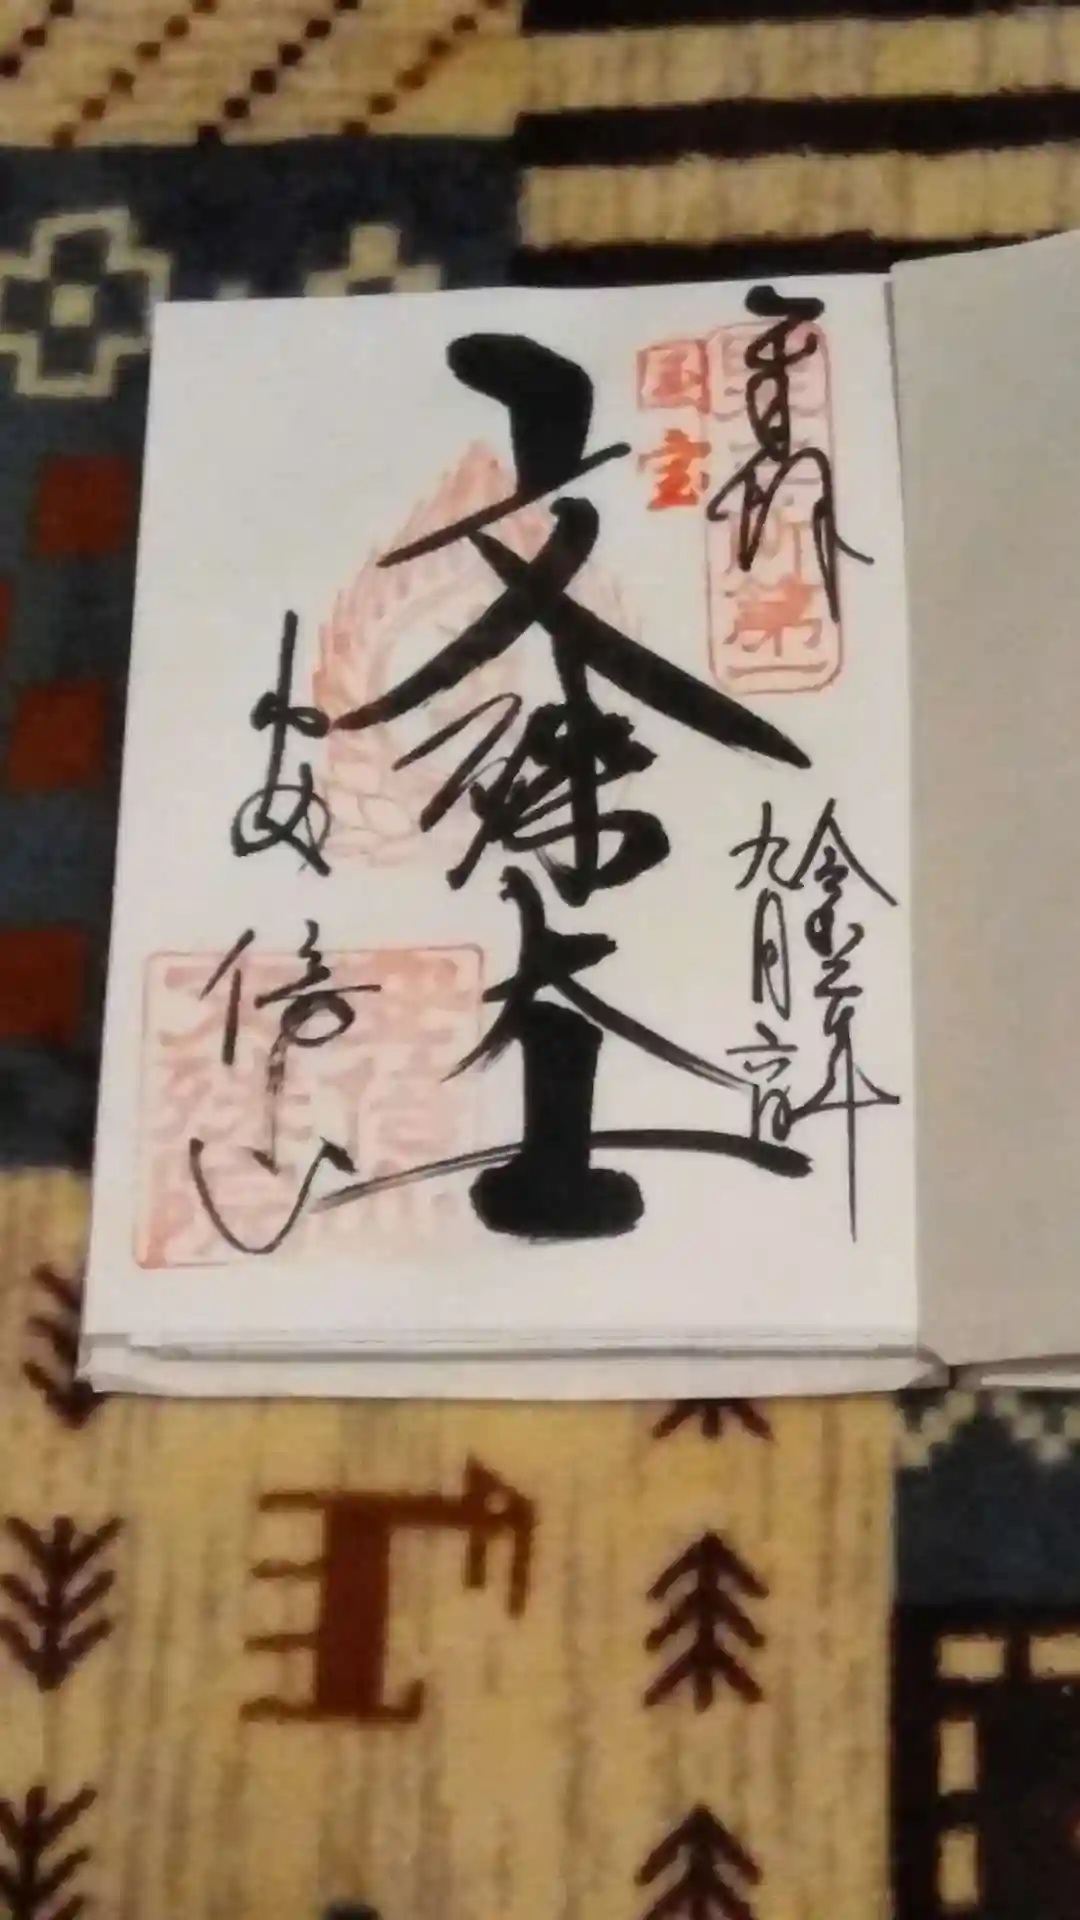 奉拝
国宝
所第一
令和二年
九月六日
文殊大士
安倍山